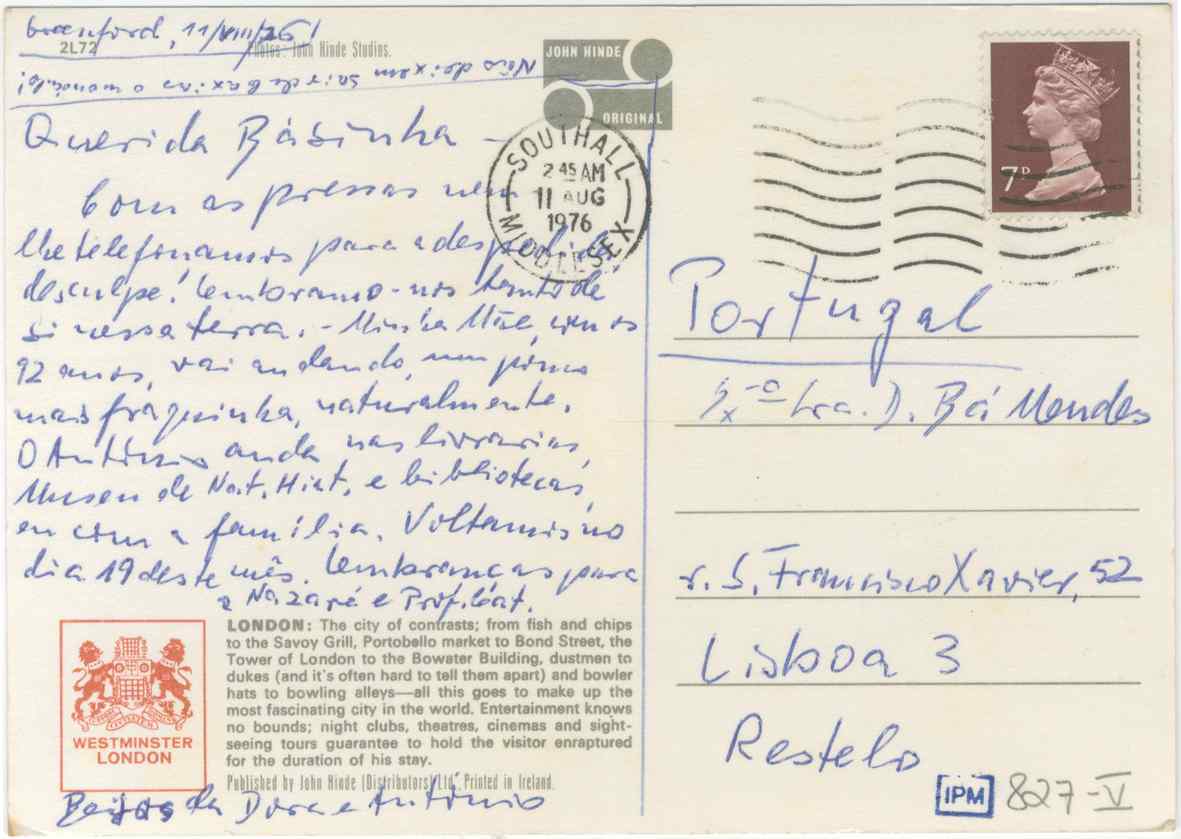 Greenford, 11/VIII/76!
2L72
Photos: John Hinde Studios.
Não deixem sair de Caxias o monóculo!
JOHN HINDE
ORIGINAL
Querida Básinha —
Com as pressas nem
lhe telefonamos para a despedida,
desculpe! Lembramo-nos tanto de
si nessa terra. - Minha Mãe, com os
92 anos, vai andando, um pouco
mais fraquinha, naturalmente.
O António anda nas livrarias,
Museu de Nat. Hist. e bibliotecas,
eu com a família. Voltamos no
dia 19 deste mês. Lembranças para
a Nazaré e Prof.
LONDON: The city of contrasts; from fish and chips
to the Savoy Grill, Portobello market to Bond Street, the
Tower of London to the Bowater Building, dustmen to
dukes (and it's often hard to tell them apart) and bowler
hats to bowling alleys—all this goes to make up the
most fascinating city in the world. Entertainment knows
no bounds; night clubs, theatres, cinemas and sight-
seeing tours guarantee to hold the visitor enraptured
for the duration of his stay.
WESTMINSTER
LONDON
Published by John Hinde (Distributors) Ltd. Printed in Ireland.
Beijos da Dora e António
SOUTHALL
2 45 AM
11 AUG
1976
MIDDLESEX
7P
Portugal
Ex.ª Sra. D. Bá Mendes
r. S. Francisco Xavier, 52
Lisboa 3
Restelo
IPM 827-V